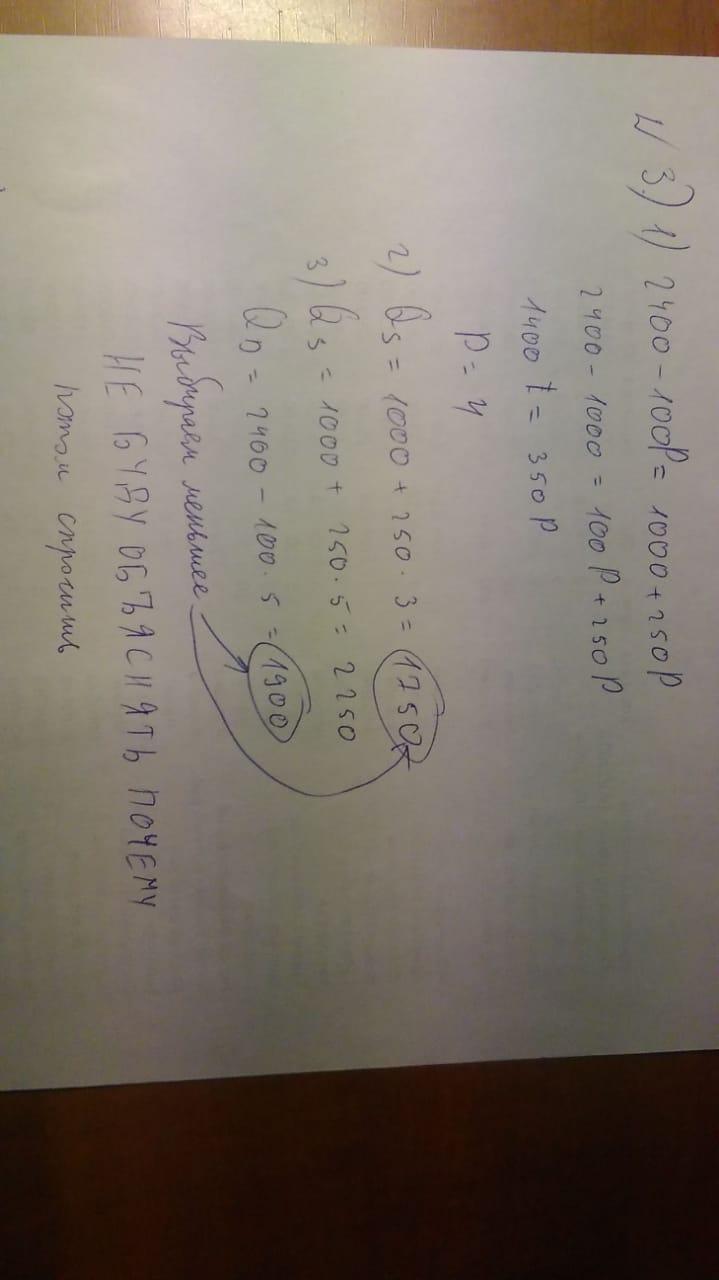 № 3) 1) 2400 - 100P = 1000 + 250P
2400 - 1000 = 100P + 250P
1400 = 350P
P = 4
2) Qs = 1000 + 250 · 3 = 1750
3) Qs = 1000 + 250 · 5 = 2250
QD = 2400 - 100 · 5 = 1900
Выбираем меньшее
НЕ БУДУ ОБЪЯСНЯТЬ ПОЧЕМУ
потом спросишь